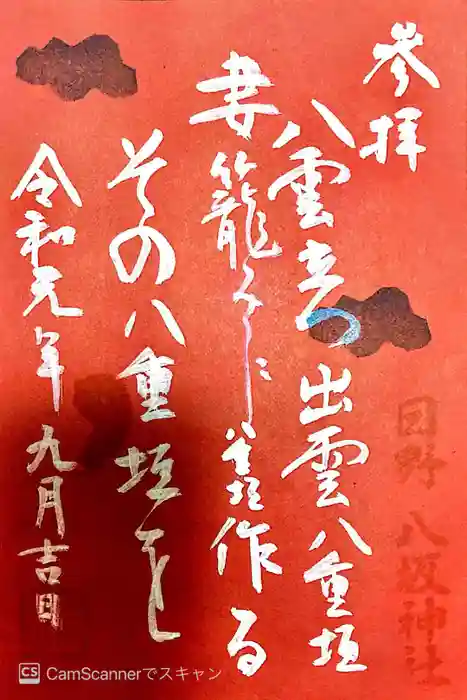 参拝
日野八坂神社
八雲立つ出雲八重垣
妻籠みに八重垣作る
その八重垣を
令和元年九月吉日
CS CamScannerでスキャン